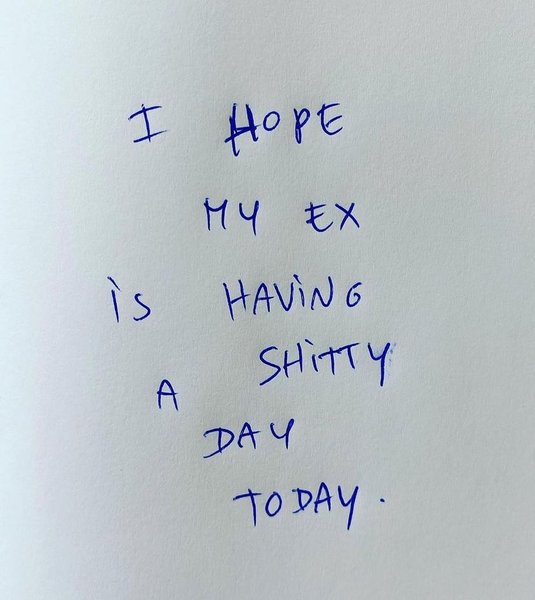 I HOPE
MY EX
is HAViNG
A SHiTTY
DAY
TODAY.